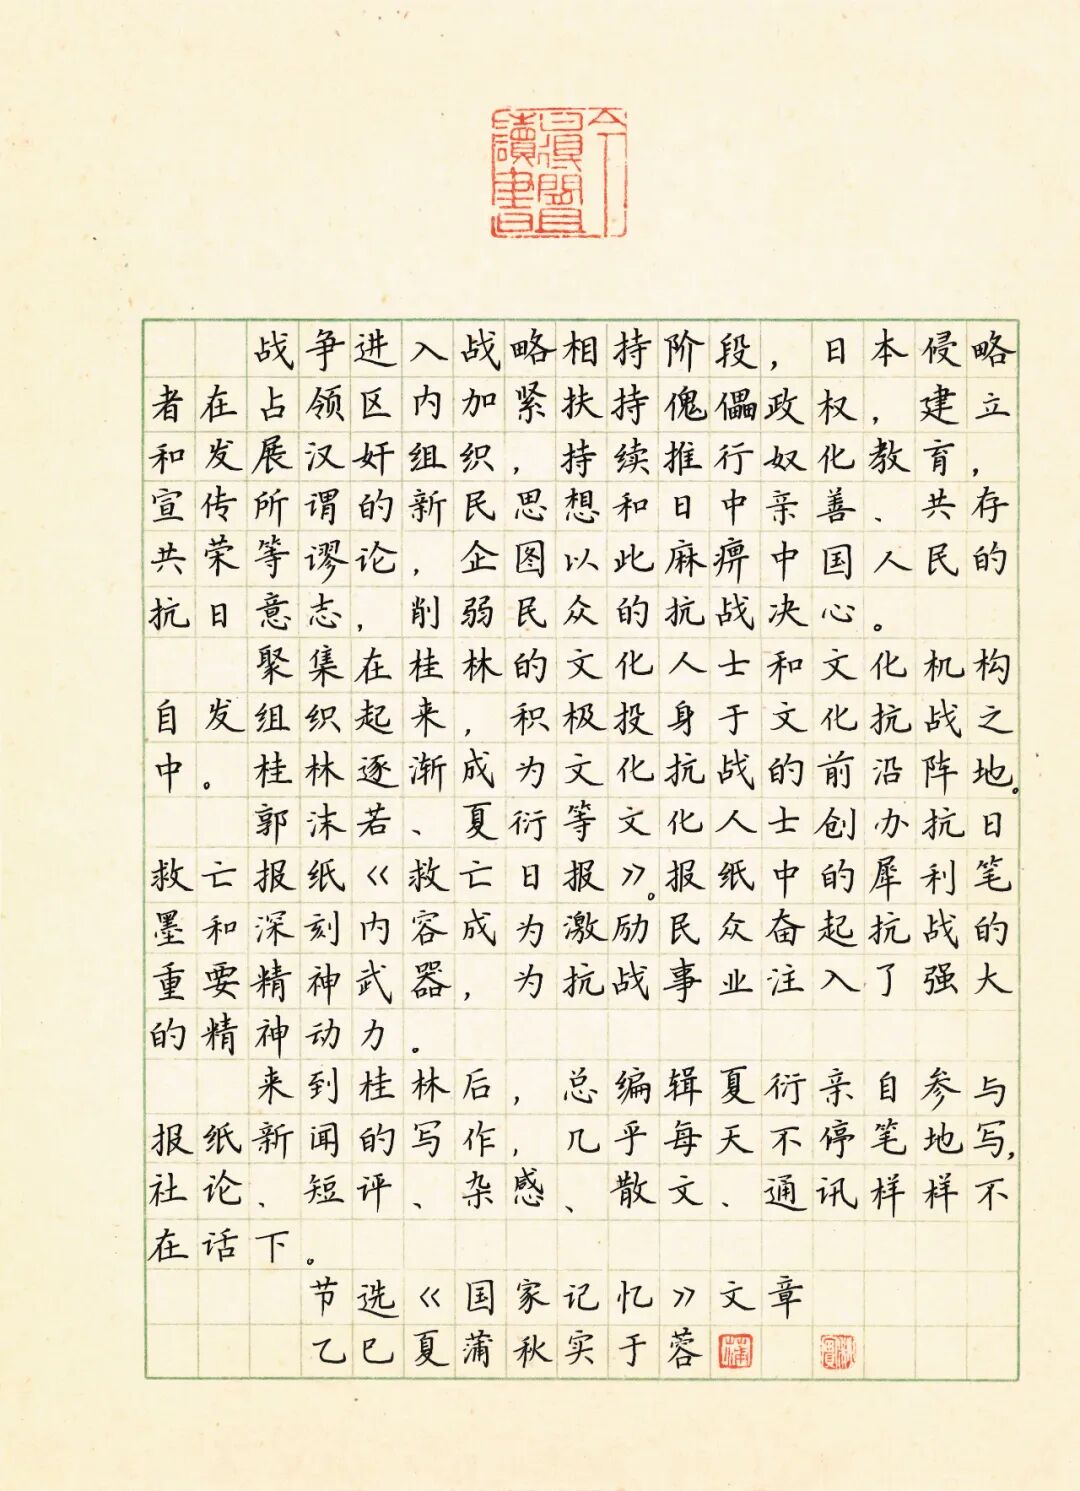 战争进入战略相持阶段，日本侵略
者在占领区内加紧扶持傀儡政权，建立
和发展汉奸组织，持续推行奴化教育，
宣传所谓的新民思想和日中亲善、共存
共荣等谬论，企图以此麻痹中国人民的
抗日意志，削弱民众的抗战决心。
聚集在桂林的文化人士和文化机构
自发组织起来，积极投身于文化抗战之
中。桂林逐渐成为文化抗战的前沿阵地。
郭沫若、夏衍等文化人士创办抗日
救亡报纸《救亡日报》。报纸中的犀利笔
墨和深刻内容成为激励民众奋起抗战的
重要精神武器，为抗战事业注入了强大
的精神动力。
来到桂林后，总编辑夏衍亲自参与
报纸新闻的写作，几乎每天不停笔地写，
社论、短评、杂感、散文、通讯样样不
在话下。
节选《国家记忆》文章
乙巳夏蒲秋实于蓉 蒲 秋實